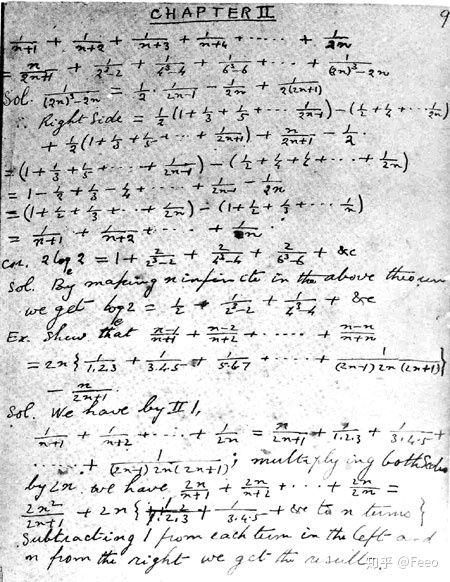 CHAPTER II
9
1/(n+1) + 1/(n+2) + 1/(n+3) + 1/(n+4) + ..... + 1/2n
= n/(2n+1) + 1/(2³-2) + 1/(4³-4) + 1/(6³-6) + ... + 1/((2n)³-2n)
Sol. 1/((2n)³-2n) = 1/2 · 1/(2n-1) - 1/2n + 1/(2(2n+1))
∴ Right Side = 1/2(1 + 1/3 + 1/5 + ... 1/(2n-1)) - (1/2 + 1/4 + ... 1/2n)
+ 1/2(1 + 1/3 + 1/5 + ... + 1/(2n+1)) + n/(2n+1) - 1/2.
= (1 + 1/3 + 1/5 + ... + 1/(2n-1)) - (1/2 + 1/4 + 1/6 + ... + 1/2n)
= 1 - 1/2 + 1/3 - 1/4 + ... + 1/(2n-1) - 1/2n
= (1 + 1/2 + 1/3 + ... + 1/2n) - (1 + 1/2 + 1/3 + ... 1/n)
= 1/(n+1) + 1/(n+2) + ... + 1/2n.
Cor. 2 logₑ2 = 1 + 2/(2³-2) + 2/(4³-4) + 2/(6³-6) + &c
Sol. By making n infinite in the above theorem
we get logₑ2 = 1/2 + 1/(2³-2) + 1/(4³-4) + &c
Ex. Shew that (n-1)/(n+1) + (n-2)/(n+2) + ..... + (n-n)/(n+n)
= 2n{1/1.2.3 + 1/3.4.5 + 1/5.6.7 + ... + 1/((2n-1)2n(2n+1))}
- n/(2n+1).
Sol. We have by II 1,
1/(n+1) + 1/(n+2) + ... + 1/2n = n/(2n+1) + 1/1.2.3 + 1/3.4.5 +
..... + 1/((2n-1)2n(2n+1)); multiplying both sides
by 2n we have 2n/(n+1) + 2n/(n+2) + ... + 2n/2n =
2n²/(2n+1) + 2n{1/1.2.3 + 1/3.4.5 + &c to n terms}
Subtracting 1 from each term in the left and
n from the right we get the result.
知乎 @Feeo